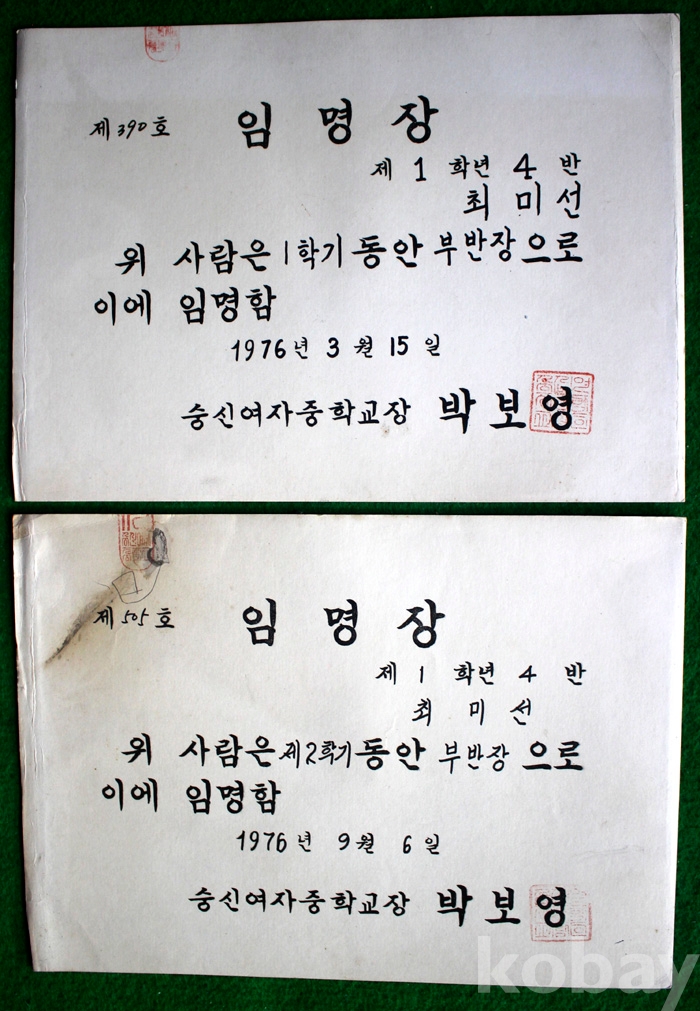 제 390 호 임 명 장
제 1 학년 4 반
최 미 선
위 사람은 1학기 동안 부반장 으로
이에 임명함
1976 년 3 월 15 일
숭신여자중학교장 박 보 영
제 505 호 임 명 장
제 1 학년 4 반
최 미 선
위 사람은 제2학기 동안 부반장 으로
이에 임명함
1976 년 9 월 6 일
숭신여자중학교장 박 보 영
kobay